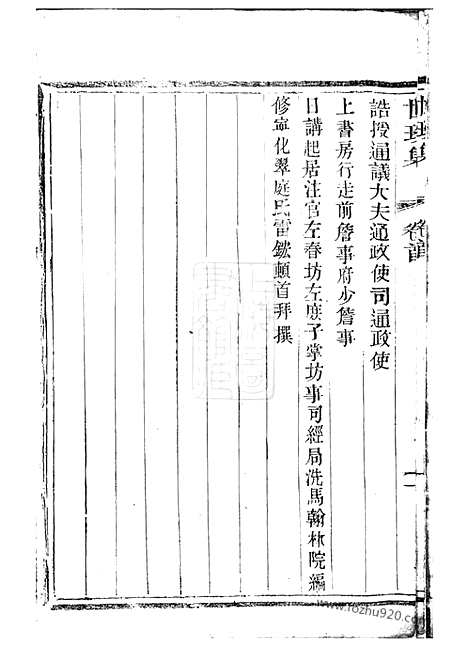 誥授通議大夫通政使司通政使
上書房行走前詹事府少詹事
日講起居注官左春坊左庶子掌坊事司經局洗馬翰林院編
修寧化翠庭氏雷鋐頓首拜撰
卷首
www.fozhu920.com